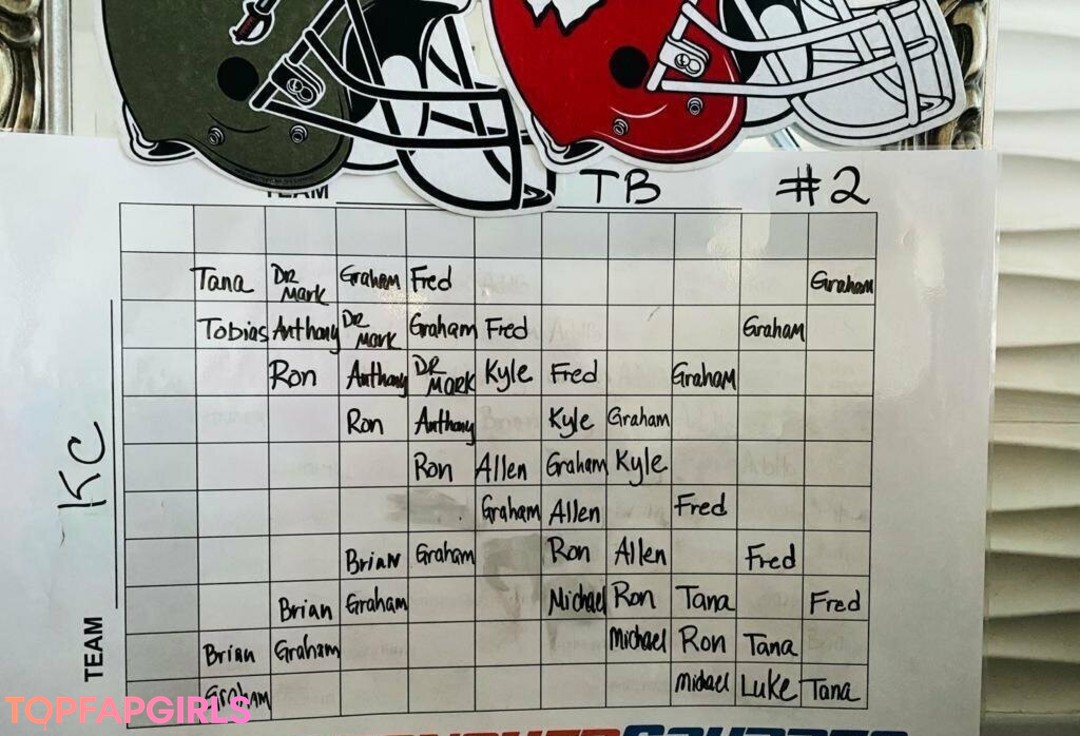 TEAM TB #2
Tana DR Mark Graham Fred Graham
Tobias Anthony DR Mark Graham Fred Graham
Ron Anthony DR MARK Kyle Fred Graham
Ron Anthony Kyle Graham
KC
Ron Allen Graham Kyle
Graham Allen Fred
Brian Graham Ron Allen Fred
Brian Graham Michael Ron Tana Fred
TEAM
Brian Graham Michael Ron Tana
Graham Michael Luke Tana
TOPFAPGIRLS